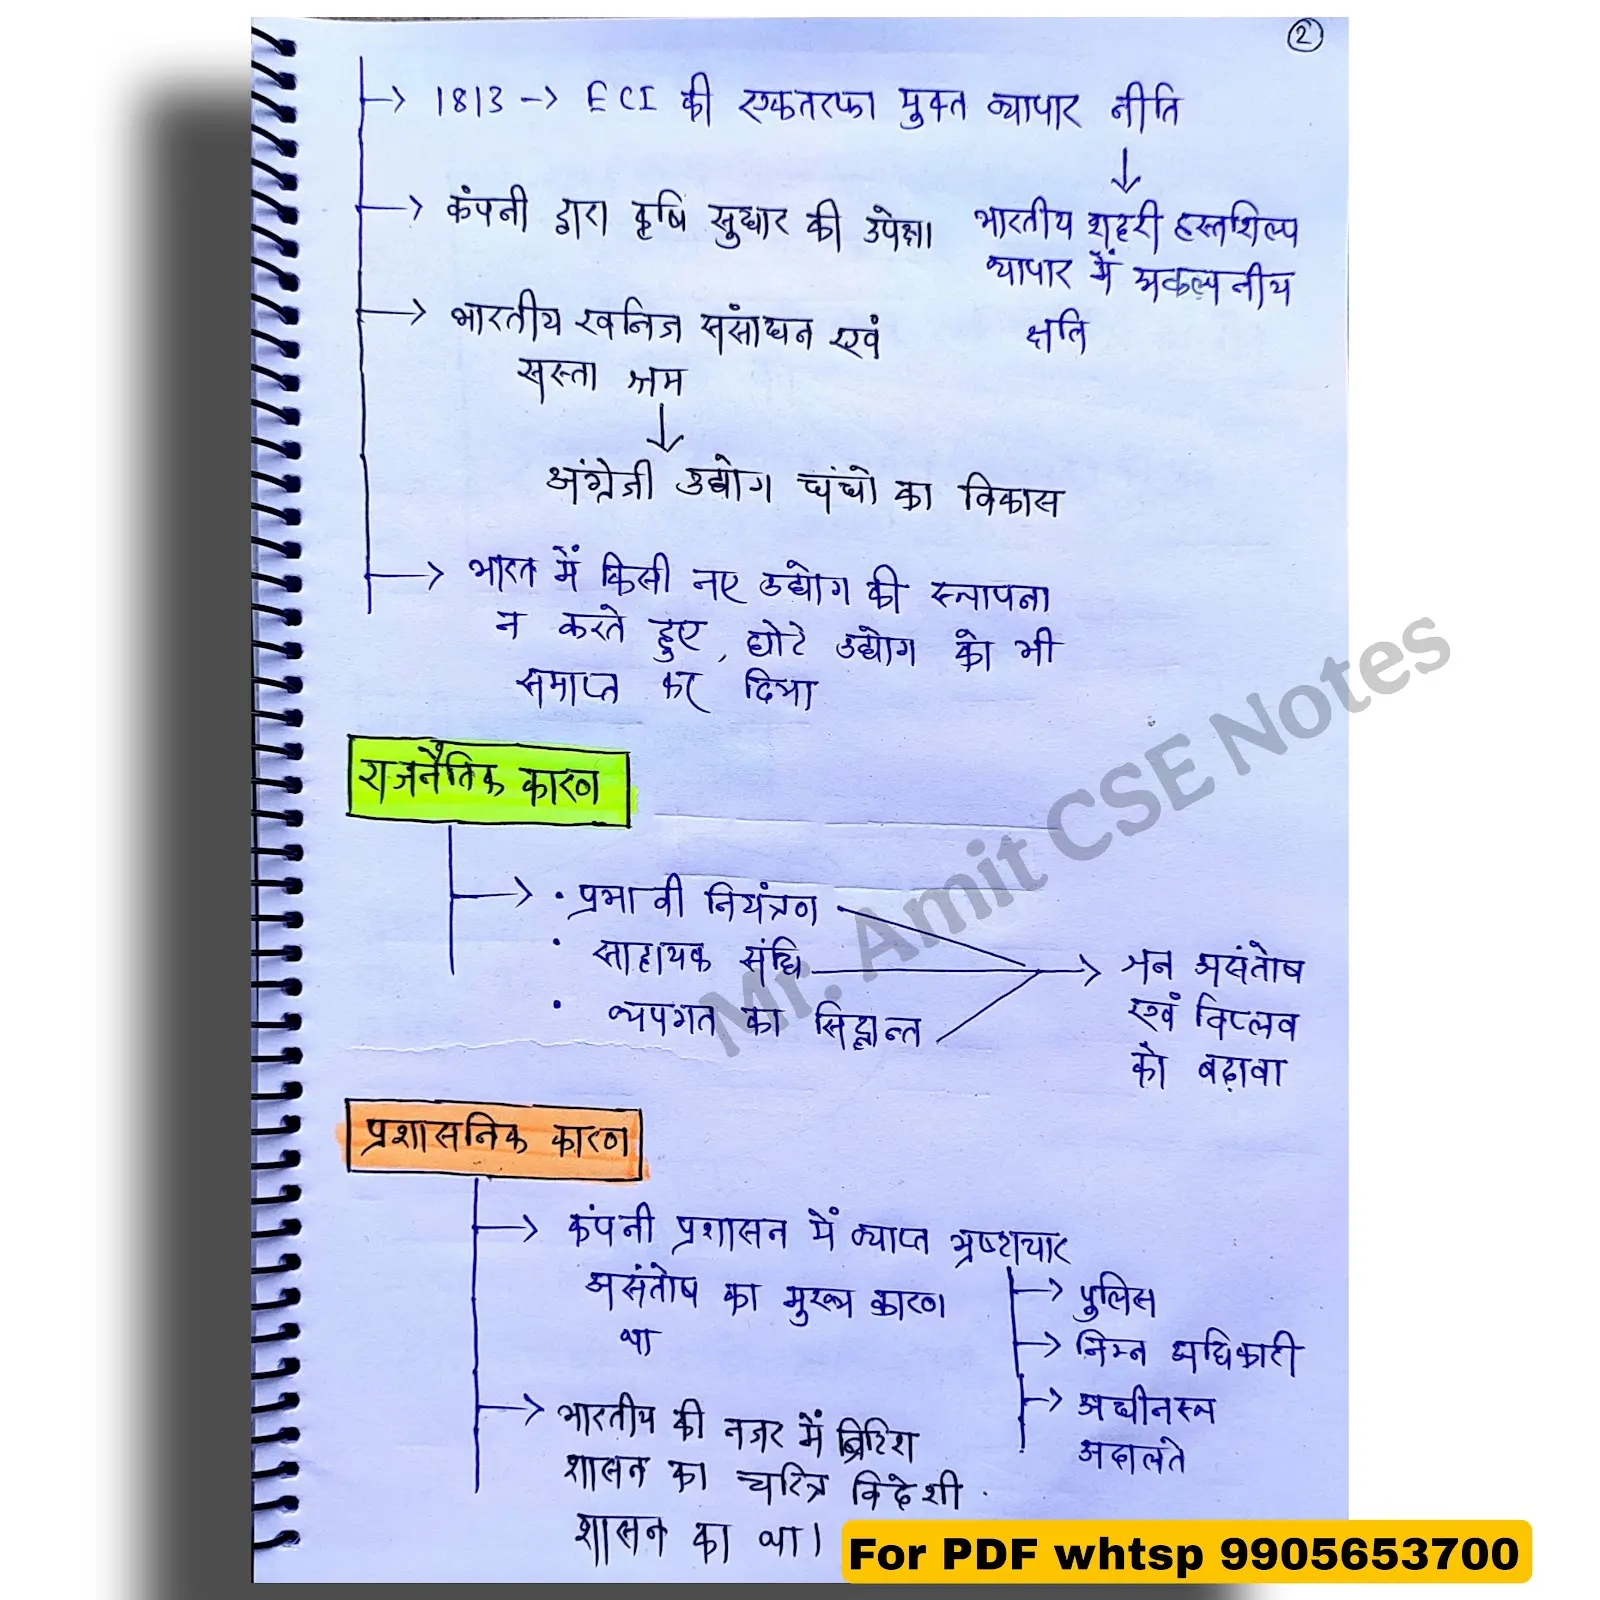 2
1813 -> ECI की एकतरफा मुक्त व्यापार नीति
कंपनी द्वारा कृषि सुधार की उपेक्षा
भारतीय शहरी हस्तशिल्प
व्यापार में अकल्पनीय
क्षति
भारतीय खनिज संसाधन एवं
सस्ता श्रम
अंग्रेजी उद्योग धंधो का विकास
भारत में किसी नए उद्योग की स्थापना
न करते हुए, छोटे उद्योग को भी
समाप्त कर दिया
राजनैतिक कारण
• प्रभावी नियंत्रण
• साहायक संधि
• व्यपगत का सिद्धान्त
जन असंतोष
एवं विप्लव
को बढ़ावा
प्रशासनिक कारण
कंपनी प्रशासन में व्याप्त भ्रष्टाचार
असंतोष का मुख्य कारण
था
पुलिस
निम्न अधिकारी
अधीनस्थ
अदालते
भारतीय की नजर में ब्रिटिश
शासन का चरित्र विदेशी
शासन का था।
Mr. Amit CSE Notes
For PDF whtsp 9905653700